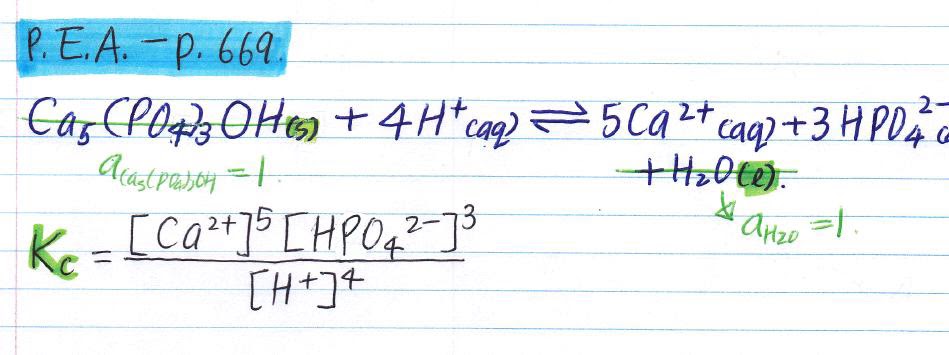 P.E.A. - p. 669.
Ca₅(PO₄)₃OH(s) + 4H⁺(aq) ⇌ 5Ca²⁺(aq) + 3HPO₄²⁻
+ H₂O(l).
a Ca₅(PO₄)₃OH = 1.
a H₂O = 1.
Kc = [Ca²⁺]⁵[HPO₄²⁻]³
[H⁺]⁴